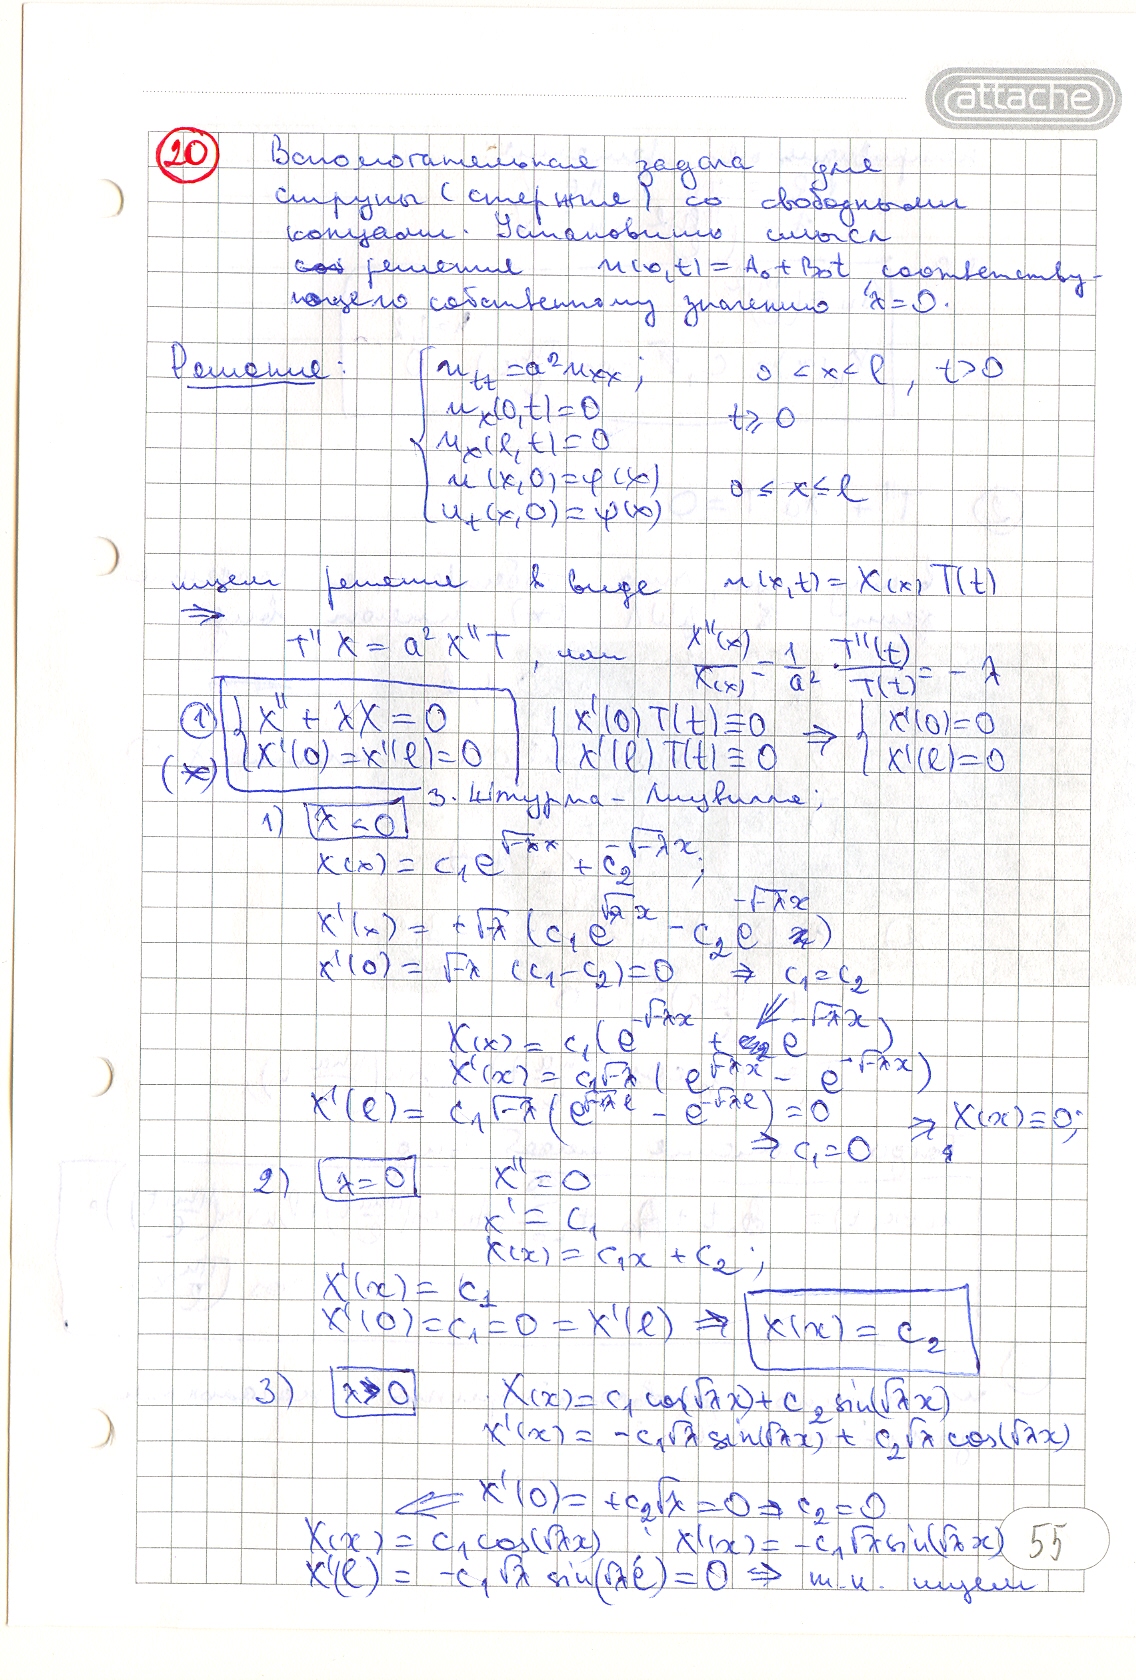 attache
20 Вспомогательная задача для
струны (стержня) со свободными
концами. Установить смысл
решения u(0,t) = A₀ + B₀t соответству-
ющего собственному значению λ = 0.
Решение: { u_tt = a² u_xx ; 0 < x < l , t > 0
u_x(0,t) = 0 t ⩾ 0
u_x(l,t) = 0
u(x,0) = φ(x) 0 ≤ x ≤ l
u_t(x,0) = ψ(x)
ищем решение в виде u(x,t) = X(x) T(t)
⇒
T'' X = a² X'' T , или X''(x)/X(x) = 1/a² · T''(t)/T(t) = - λ
① { X'' + λX = 0 { X'(0) T(t) ≡ 0 ⇒ { X'(0) = 0
(*) X'(0) = X'(l) = 0 X'(l) T(t) ≡ 0 X'(l) = 0
З. Штурма-Лиувилля;
1) λ < 0
X(x) = c₁e^{√-λ x} + c₂^{-√-λ x};
X'(x) = +√-λ (c₁e^{√-λ x} - c₂e^{-√-λ x})
X'(0) = √-λ (c₁ - c₂) = 0 ⇒ c₁ = c₂
X(x) = c₁(e^{-√-λ x} + e^{-√-λ x})
X'(x) = c₁√-λ (e^{√-λ x} - e^{-√-λ x})
X'(l) = c₁√-λ (e^{√-λ l} - e^{-√-λ l}) = 0 ⇒ X(x) ≡ 0;
⇒ c₁ = 0
2) λ = 0 X'' = 0
X' = c₁
X(x) = c₁x + c₂ ;
X'(x) = c₁
X'(0) = c₁ = 0 = X'(l) ⇒ X(x) = c₂
3) λ > 0 X(x) = c₁ cos(√λ x) + c₂ sin(√λ x)
X'(x) = -c₁√λ sin(√λ x) + c₂√λ cos(√λ x)
⇐ X'(0) = +c₂√λ = 0 ⇒ c₂ = 0
X(x) = c₁ cos(√λ x) ; X'(x) = -c₁√λ sin(√λ x)
X'(l) = -c₁√λ sin(√λ l) = 0 ⇒ т.к. ищем
55